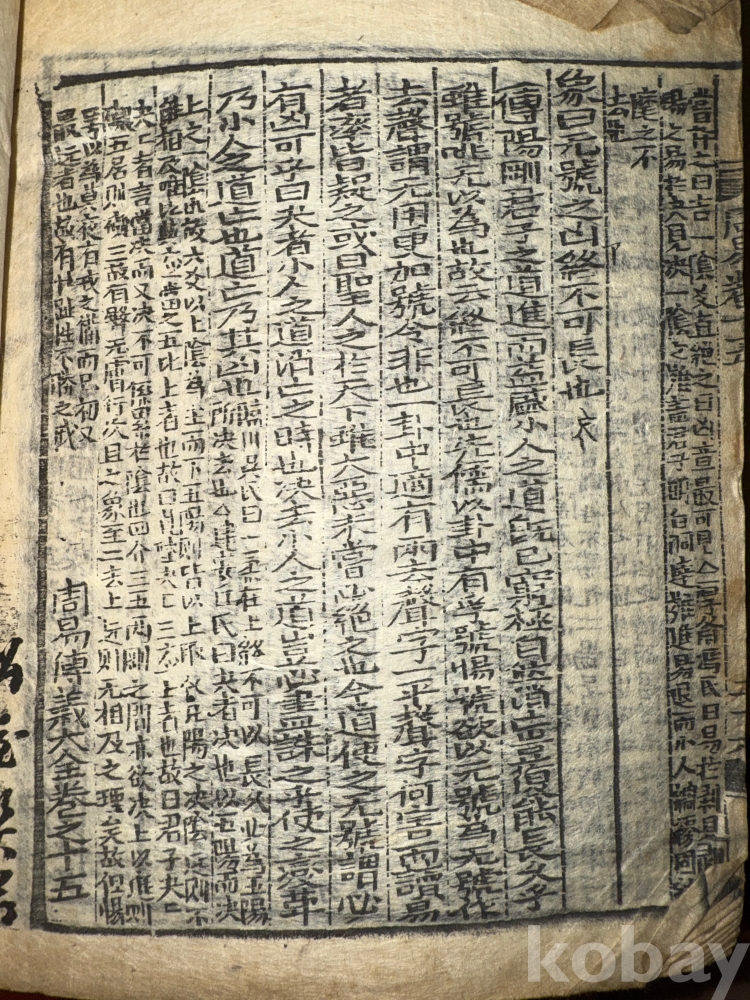 嘗言之曰吉一陰爻直絶之曰凶意最可見○厚齋馮氏曰易於剝見剛
陽之易於夬見決一陰之難盖君子明白洞達難進易退而小人
度之不
去
周易卷十五
象曰无號之凶終不可長也
傳陽剛君子之道進而益盛小人之道既已窮極自然消亡豈復能長久乎
雖號咷无以為也故云終不可長也先儒以卦中有孚號惕號欲以无號為无號作
去聲謂无用更加號令非也一卦中適有兩去聲字一平聲字何害而讀易
者率皆疑之或曰聖人之於天下雖大惡未嘗必絶之也今道使之无號謂必
有凶可乎曰夬者小人之道消亡之時也決去小人之道豈必盡誅之乎使之變革
乃小人之道亡也道亡乃其凶也
臨川吳氏曰一柔在上終不可以長久此為五陽
所決去也○建安丘氏曰夬者決也以五陽而決
上之一陰也故六爻以上陰為主而下五陽則皆以上取象凡陽之決陰遠則不
能相及唯比與應當之五比上者也故曰莧陸夬夬三應上者也故曰君子夬夬
夬夬者言當決而又決不可係累於陰也四介三五兩剛之間亦欲決上以進則
礙五居則礙三故有臀无膚行次且之象至二去上遠則无相及之理矣故但惕
號以為莫夜有戎之備而已初又
最遠者也故有壯趾往不勝之戒
周易傳義大全卷之十五
kobay